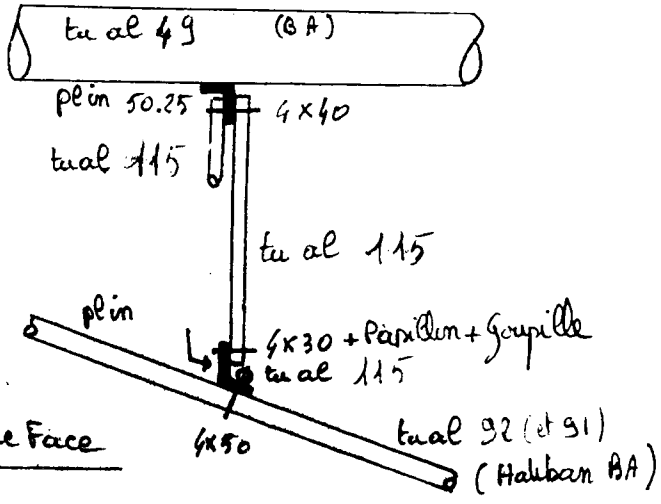 tu al 49 (BA)
plin 50.25 4x40
tual 115
tu al 115
plin
4x30 + Papillon + Goupille
tu al 115
4x50
e Face
tual 92 (et 91)
(Hauban BA)